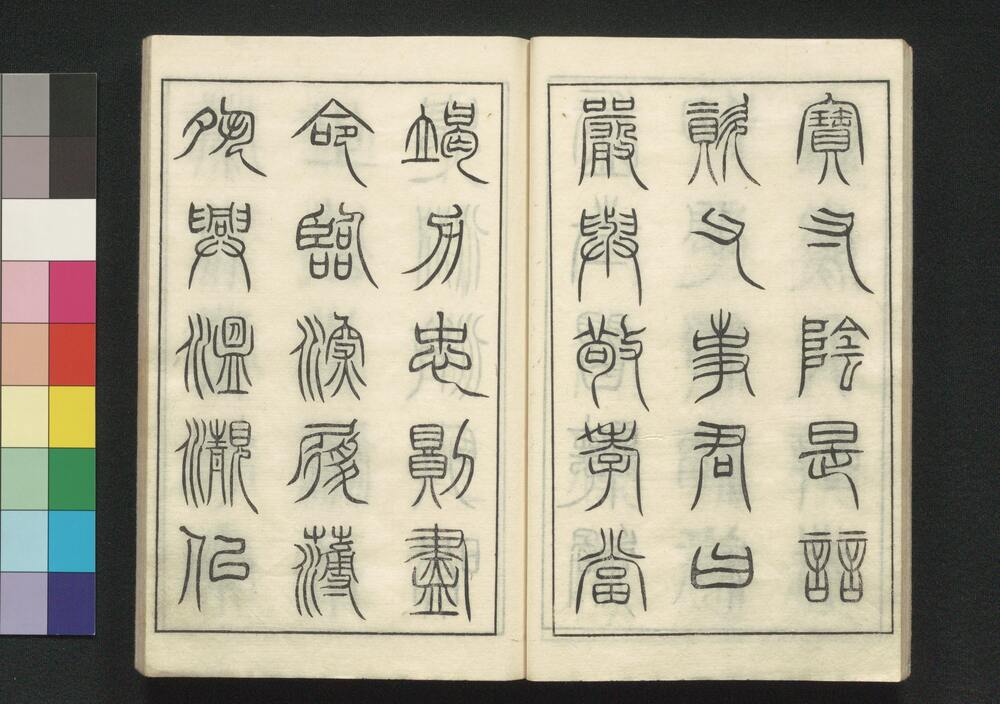 寶寸陰是競
資父事君曰
嚴與敬孝當
竭力忠則盡
命臨深履薄
夙興溫凊似